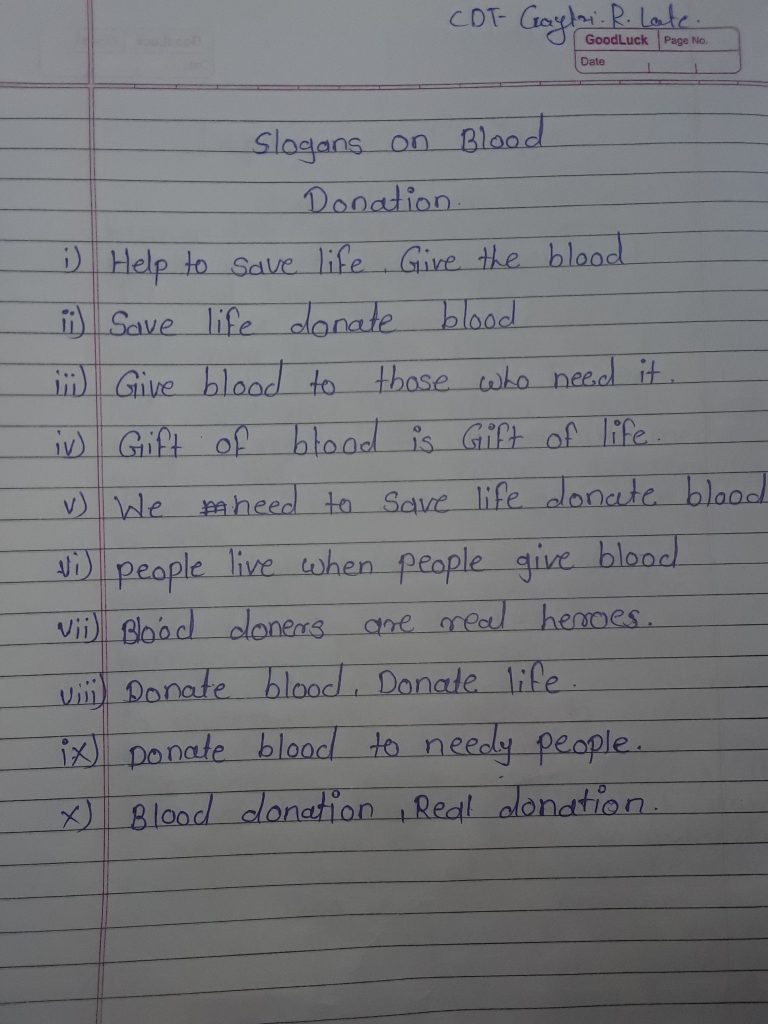 CDT- Gaytri. R. Late.
GoodLuck Page No.
Date
Slogans on Blood
Donation.
i) Help to save life. Give the blood
ii) Save life donate blood
iii) Give blood to those who need it.
iv) Gift of blood is Gift of life.
v) We need to save life donate blood
vi) people live when people give blood
vii) Blood doners are real heroes.
viii) Donate blood. Donate life.
ix) Donate blood to needy people.
x) Blood donation, Real donation.